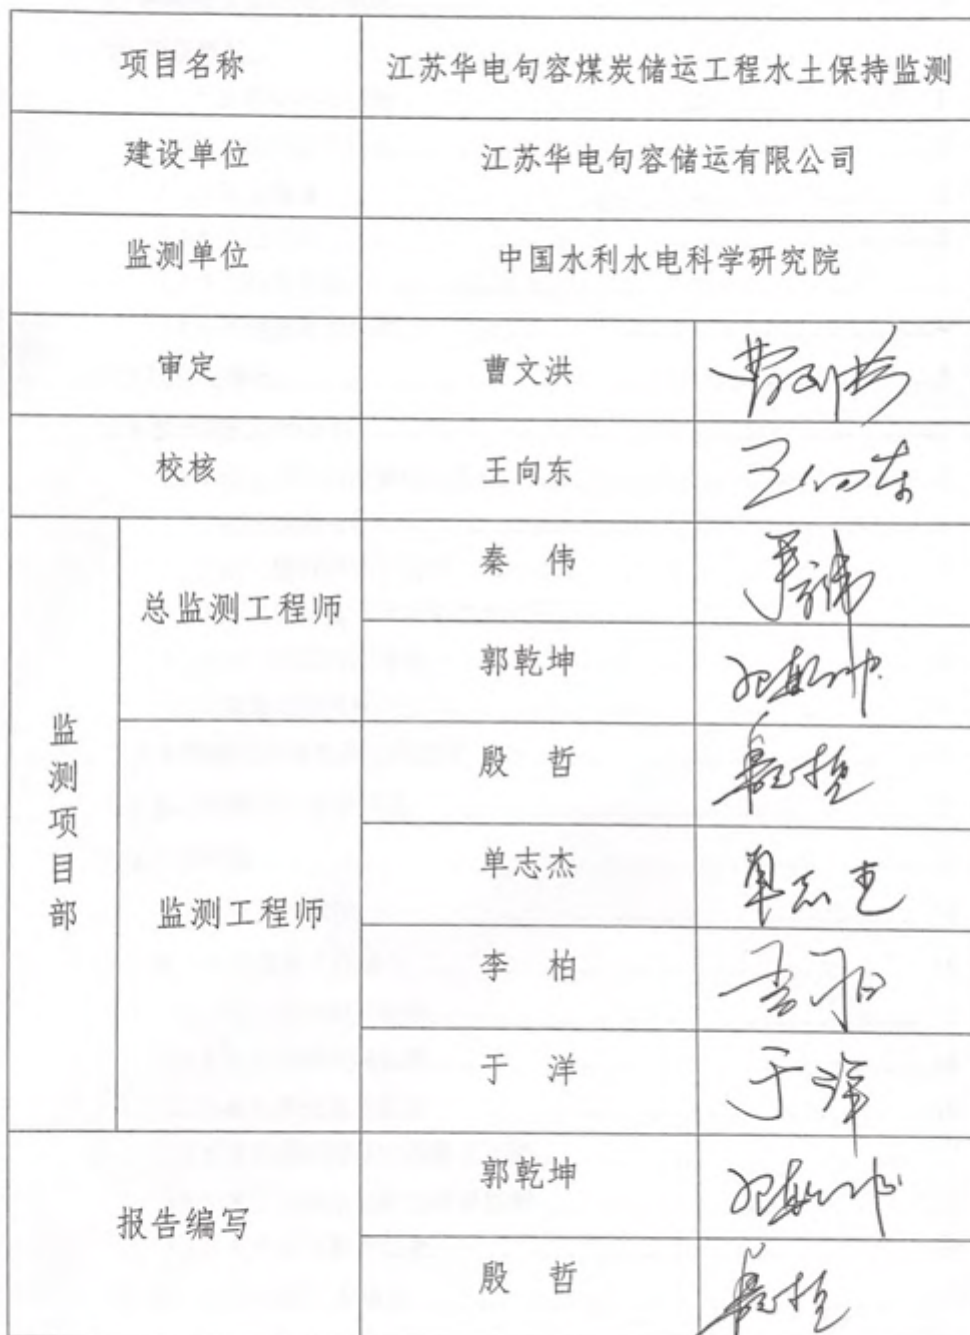 项目名称 江苏华电句容煤炭储运工程水土保持监测
建设单位 江苏华电句容储运有限公司
监测单位 中国水利水电科学研究院
审定 曹文洪 曹文洪
校核 王向东 王向东
监测项目部
总监测工程师
秦 伟 秦伟
郭乾坤 郭乾坤
监测工程师
殷 哲 殷哲
单志杰 单志杰
李 柏 李柏
于 洋 于洋
报告编写
郭乾坤 郭乾坤
殷 哲 殷哲